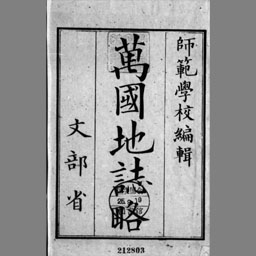 師範學校編輯
萬國地誌略
文部省
212803